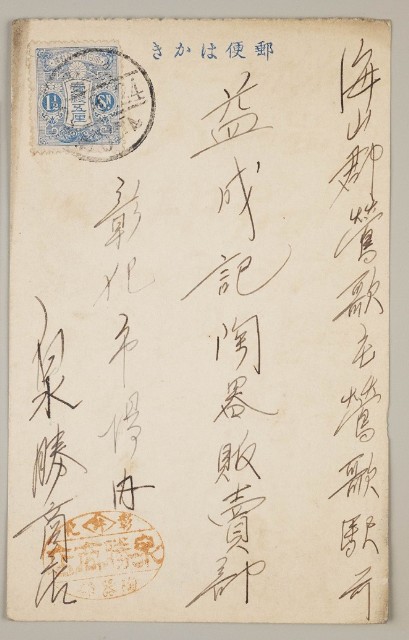 郵便はかき
海山郡鶯歌庄鶯歌駅前
益成記陶器販賣部
彰化市場内
泉勝商店
1½